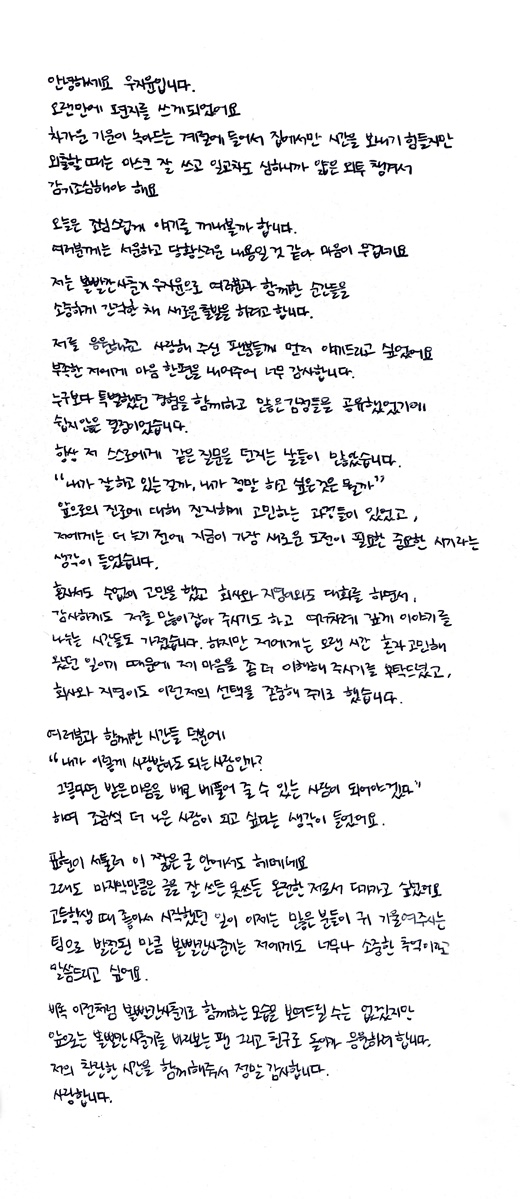 안녕하세요 우지윤입니다.
오랜만에 편지를 쓰게되었어요
차가운 기운이 녹아드는 계절에 들어서 집에서만 시간을 보내기 힘들지만
외출할 때는 마스크 잘 쓰고 일교차도 심하니까 얇은 외투 챙겨서
감기조심해야 해요
오늘은 조심스럽게 얘기를 꺼내볼까 합니다.
여러분께는 서운하고 당황스러운 내용일 것 같아 마음이 무겁네요
저는 볼빨간사춘기 우지윤으로 여러분과 함께한 순간들을
소중하게 간직한 채 새로운 출발을 하려고 합니다.
저를 응원해주고 사랑해 주신 팬분들께 먼저 얘기드리고 싶었어요
부족한 저에게 마음 한편을 내어주어 너무 감사합니다.
누구보다 특별했던 경험을 함께하고 많은 감정들을 공유했었기에
쉽지않은 결정이었습니다.
항상 저 스스로에게 같은 질문을 던지는 날들이 많았습니다.
"내가 잘하고 있는걸까, 내가 정말 하고 싶은것은 뭘까"
앞으로의 진로에 대해 진지하게 고민하는 과정들이 있었고,
저에게는 더 늦기 전에 지금이 가장 새로운 도전이 필요한 중요한 시기라는
생각이 들었습니다.
혼자서도 수없이 고민을 했고 회사와 지영이와도 대화를 하면서,
감사하게도 저를 많이 잡아 주시기도 하고 여러차례 깊게 이야기를
나누는 시간들도 가졌습니다. 하지만 저에게는 오랜 시간 혼자 고민해
왔던 일이기 때문에 제 마음을 좀 더 이해해 주시기를 부탁드렸고,
회사와 지영이도 이런 저의 선택을 존중해 주기로 했습니다.
여러분과 함께한 시간들 덕분에
"내가 이렇게 사랑받아도 되는 사람인가?
그렇다면 받은 마음을 배로 베풀어 줄 수 있는 사람이 되어야겠다"
하며 조금씩 더 나은 사람이 되고 싶다는 생각이 들었어요.
표현이 서툴러 이 짧은 글 안에서도 헤매네요
그래도 마지막만큼은 글을 잘 쓰든 못쓰든 온전한 저로서 다가가고 싶었어요
고등학생 때 좋아서 시작했던 일이 이제는 많은 분들이 귀 기울여주시는
팀으로 발전된 만큼 볼빨간사춘기는 저에게도 너무나 소중한 추억이라고
말씀드리고 싶어요.
비록 이전처럼 볼빨간사춘기로 함께하는 모습을 보여드릴 수는 없겠지만
앞으로는 볼빨간 사춘기를 바라보는 팬 그리고 친구로 돌아가 응원하려 합니다.
저의 찬란한 시간을 함께해줘서 정말 감사합니다.
사랑합니다.